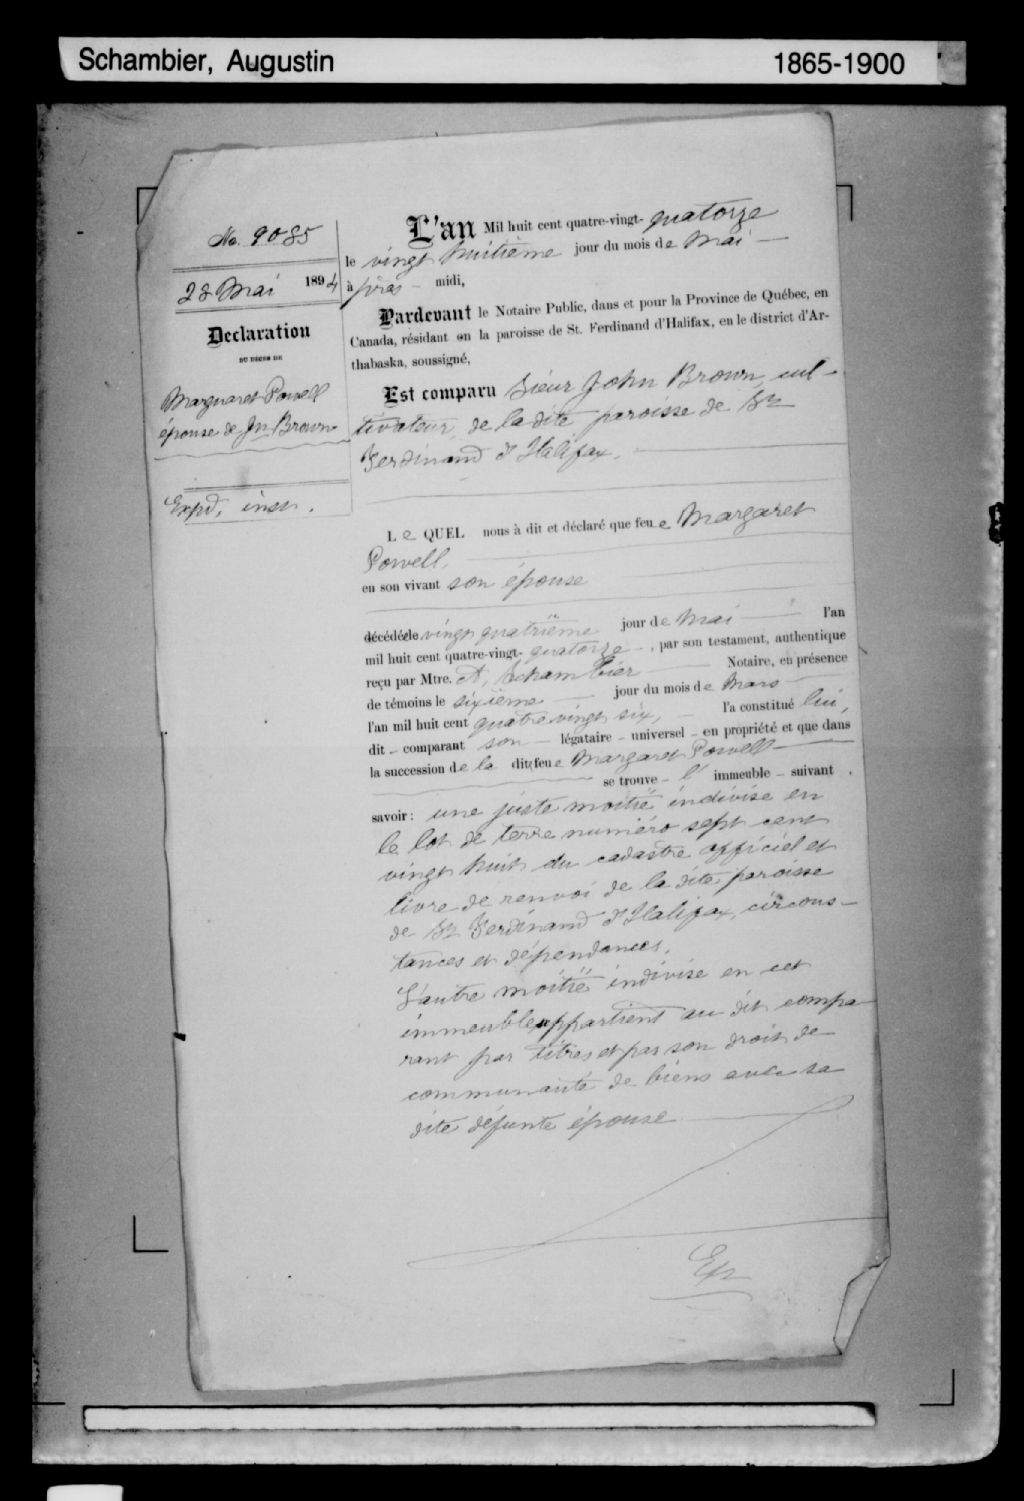 Schambier, Augustin 1865-1900
No. 9085
28 Mai 1894
Declaration
DU DECES DE
Margaret Powell
épouse de Jn Brown
Expd. insn.
L'an Mil huit cent quatre-vingt-quatorze
le vingt huitième jour du mois de Mai
après midi,
Pardevant le Notaire Public, dans et pour la Province de Québec, en
Canada, résidant en la paroisse de St. Ferdinand d'Halifax, en le district d'Ar-
thabaska, soussigné,
Est comparu Sieur John Brown, cul-
tivateur, de la dite paroisse de St
Ferdinand d'Halifax.
Le QUEL nous à dit et déclaré que feue Margaret
Powell,
en son vivant son épouse
décédée le vingt quatrième jour de Mai l'an
mil huit cent quatre-vingt-quatorze, par son testament, authentique
reçu par Mtre. A. Schambier Notaire, en présence
de témoins le sixième jour du mois de Mars
l'an mil huit cent quatre vingt six, l'a constitué lui,
dit comparant son légataire universel en propriété et que dans
la succession de la dite feue Margaret Powell
se trouve l'immeuble suivant
savoir: une juste moitié indivise en
le lot de terre numéro sept cent
vingt huit du cadastre officiel et
livre de renvoi de la dite paroisse
de St Ferdinand d'Halifax, circons-
tances et dépendances.
L'autre moitié indivise en cet
immeuble appartient au dit compa
rant par titres et par son droit de
communauté de biens avec sa
dite défunte épouse